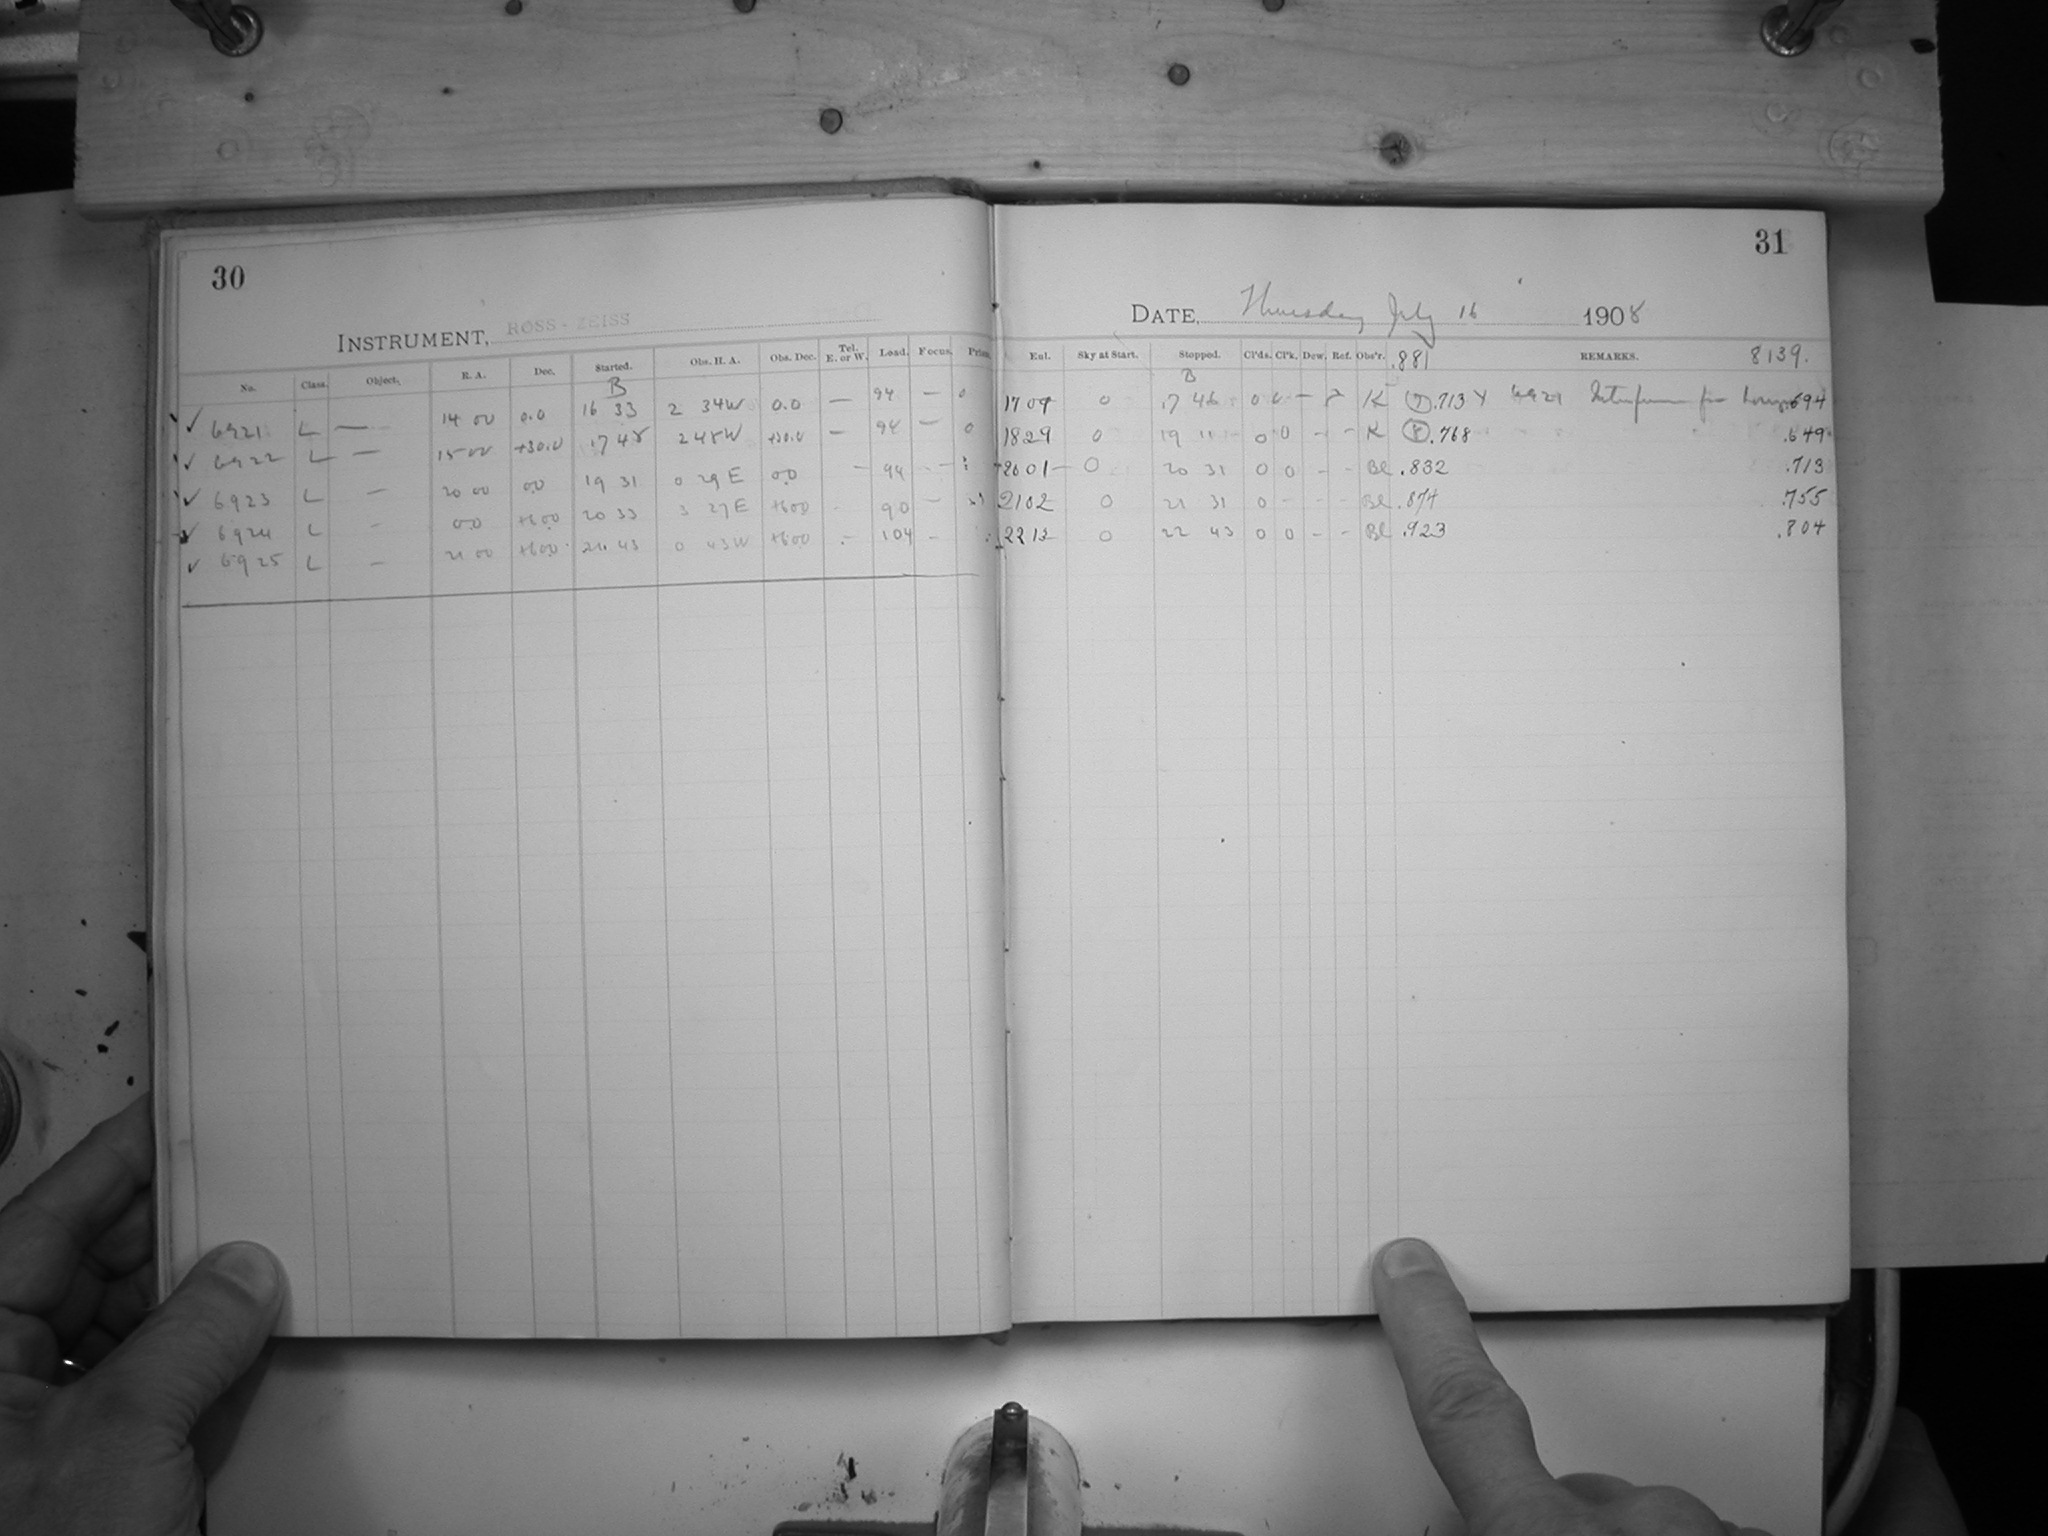 30
INSTRUMENT, ROSS-ZEISS
No. Class. Object. R. A. Dec. Started. Obs. H. A. Obs. Dec. Tel. E. or W. Load. Focus. Prism.
B
✓ 6921 L — 14 00 0.0 16 33 2 34W 0.0 — 94 — 0
✓ 6922 L — 15 00 +30.0 17 48 2 48W +30.0 — 94 — 0
✓ 6923 L — 20 00 0.0 19 31 0 29 E 0.0 — 94 -
✓ 6924 L - 0.0 +60.0 20 33 3 27 E +60.0 - 90 -
✓ 6925 L - 21 00 +60.0 21 43 0 43W +60.0 - 104 -
31
DATE, Thursday July 16 1908
Eul. Sky at Start. Stopped. Cl'ds. Cl'k. Dew. Ref. Obs'r. .881 REMARKS. 8139.
B
1709 0 17 46 0 0 — K 7 .713 6921 for .694
1829 0 19 11 0 0 - - K 8 .768 .649
2001 0 20 31 0 0 - - Bl .832 .713
2102 0 21 31 0 - - - Bl .874 .755
2213 0 22 43 0 0 - - Bl .923 .804